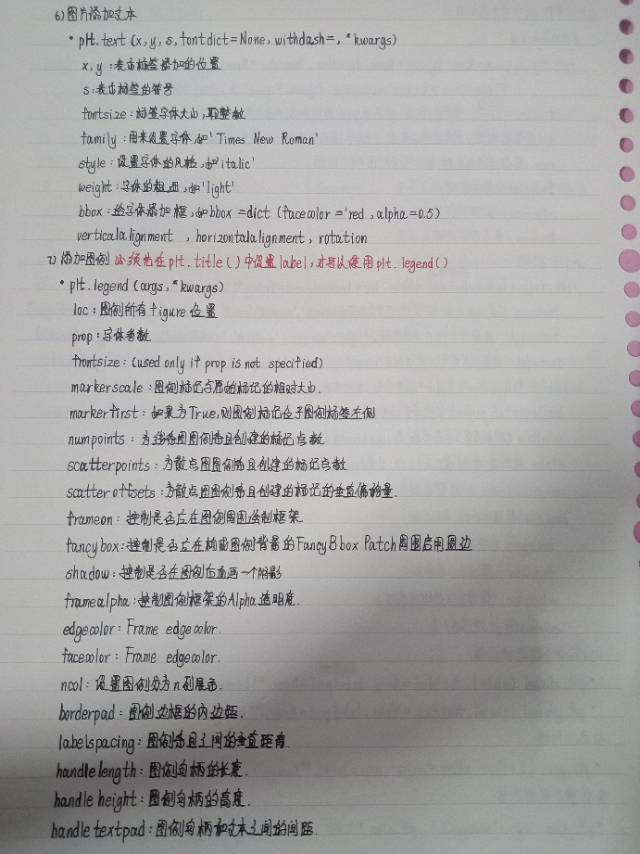 6)图片添加文本
• plt.text (x, y, s, fontdict=None, withdash=, *kwargs)
x, y :表示标签添加的位置
s:表示标签的符号
fontsize:标签字体大小,取整数
family:用来设置字体,如'Times New Roman'
style:设置字体的风格,如'italic'
weight:字体的粗细,如'light'
bbox:给字体添加框,如bbox =dict (facecolor ='red ,alpha=0.5)
verticalalignment , horizontalalignment, rotation
7)添加图例 必须先在plt.title()中设置label,才可以使用plt.legend()
• plt.legend (args, *kwargs)
loc:图例所有figure位置
prop:字体参数
frontsize: (used only if prop is not specified)
markerscale:图例标记与原始标记的相对大小.
markerfirst:如果为True,则图例标记位于图例标签左侧
numpoints:为线条图图例条目创建的标记点数
scatterpoints:为散点图图例条目创建的标记点数
scatteroffsets:为散点图图例条目创建的标记的垂直偏移量.
frameon:控制是否应在图例周围绘制框架
fancybox:控制是否应在构成图例背景的FancyBbox Patch周围启用圆边
shadow:控制是否在图例后面画一个阴影
framealpha:控制图例框架的Alpha透明度.
edgecolor: Frame edgecolor.
facecolor: Frame edgecolor.
ncol:设置图例分为n列展示.
borderpad:图例边框的内边距.
labelspacing:图例条目之间的垂直距离
handlelength:图例句柄的长度.
handleheight:图例句柄的高度.
handletextpad:图例句柄和文本之间的间距.